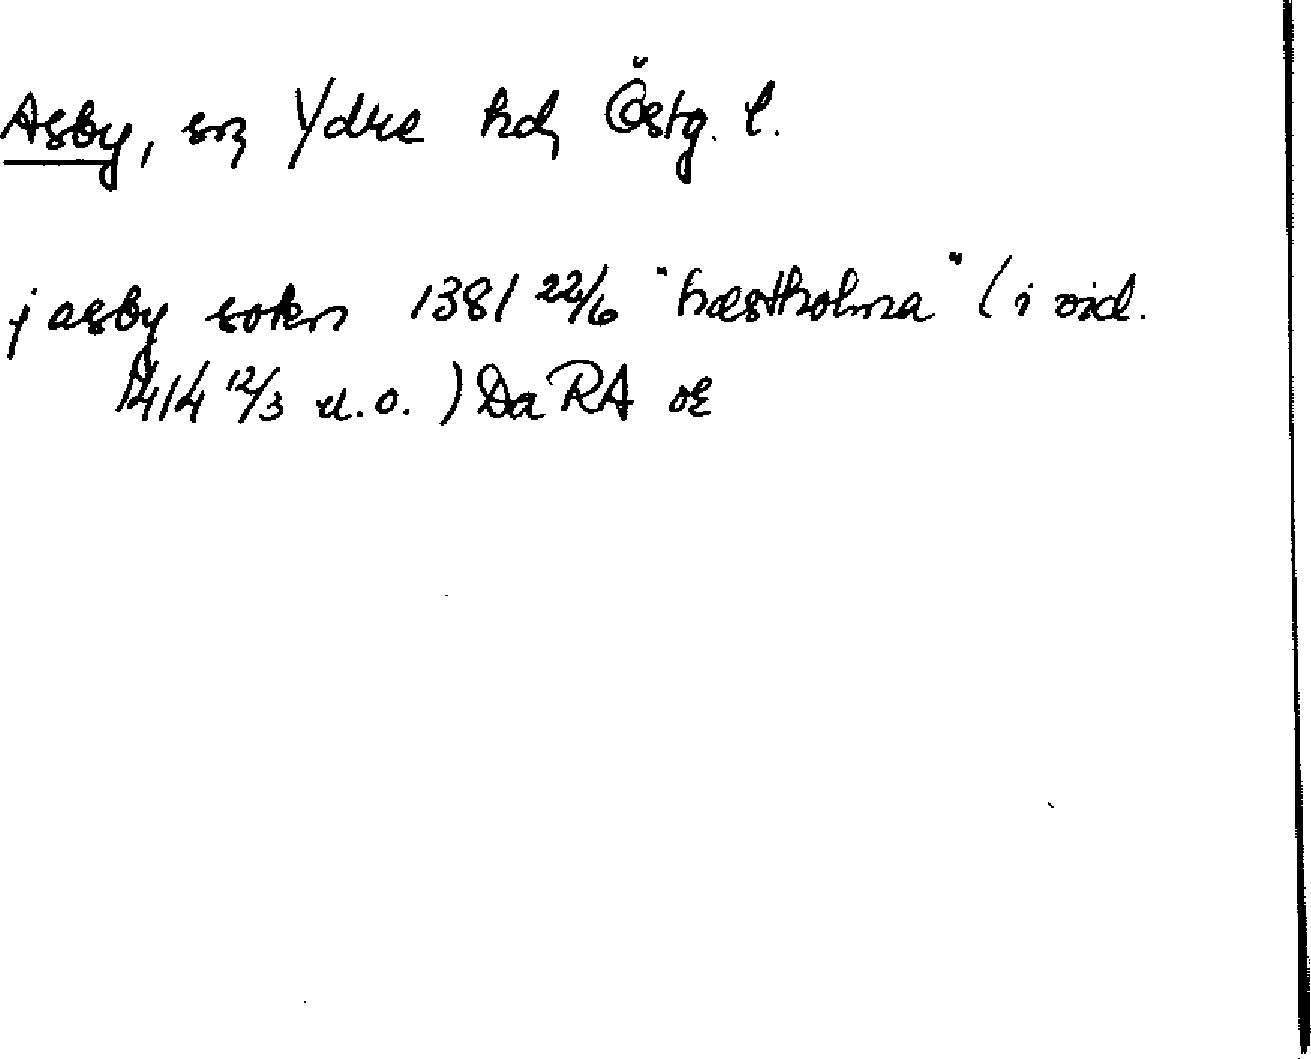 Asby, sn, Ydre hd, Östg. l.
j asby sokn 1381 22/6 "hæstholma" (i vid.
1414 12/3 u.o.) Da RA or